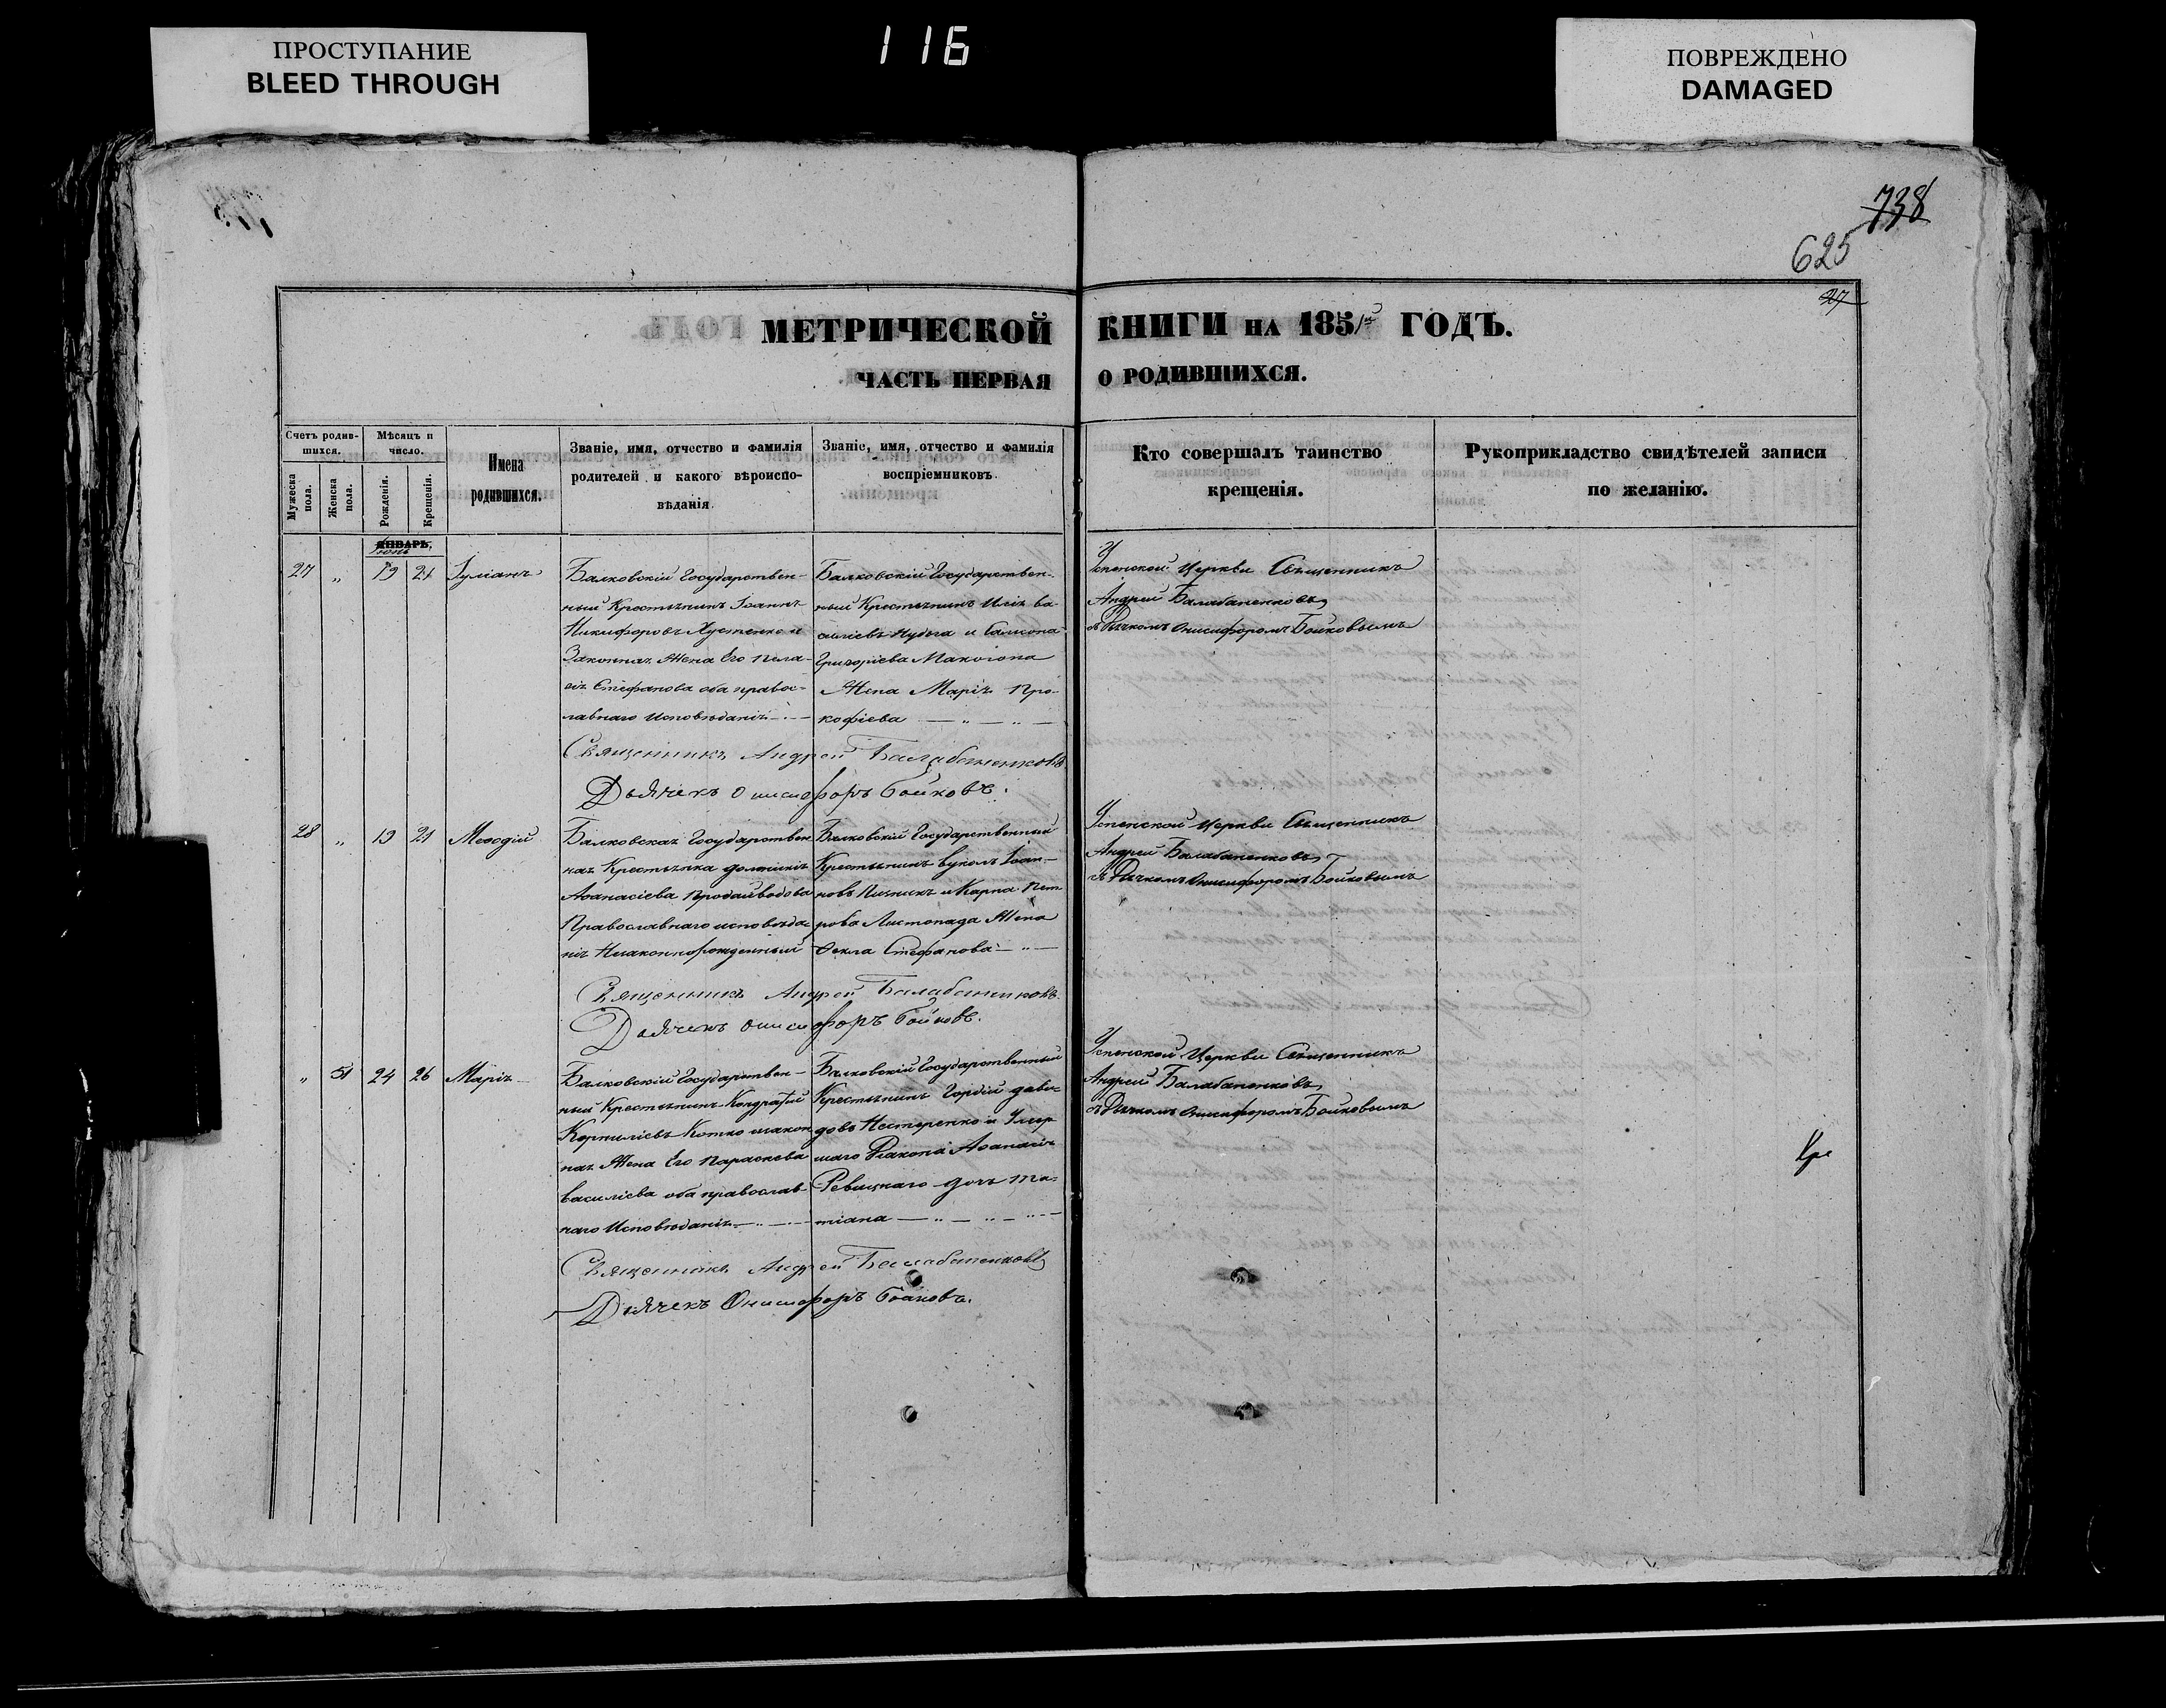 ПРОСТУПАНИЕ
BLEED THROUGH
116
ПОВРЕЖДЕНО
DAMAGED
738
625
27
МЕТРИЧЕСКОЙ КНИГИ НА 1851 ГОДЪ.
ЧАСТЬ ПЕРВАЯ О РОДИВШИХСЯ.
Счетъ родив-
шихся.
Мужеска пола.
Женска пола.
Мѣсяцъ и
число.
Рожденія.
Крещенія.
Имена
родившихся.
Званіе, имя, отчество и фамилія
родителей и какого вѣроиспо-
вѣданія.
Званіе, имя, отчество и фамилія
воспріемниковъ.
Кто совершалъ таинство
крещенія.
Рукоприкладство свидѣтелей записи
по желанію.
ЯНВАРЬ.
27 " 19 21 Іуліанъ
Балковскій Государствен-
ный Крестьянинъ Іоаннъ
Никифоровъ и
Законная Жена Его Пела-
гія Стефанова оба правос-
лавнаго Исповѣданія
Балковскій Государствен-
ный Крестьянинъ Илія Ва-
силіевъ и
Григоріева Макогона
Жена Марія Про-
кофіева
Успенской Церкви Священникъ
Андрей Балабаненковъ
съ Дячкомъ Онисифоромъ Бойковымъ
Священникъ Андрей Балабаненковъ
Дьячекъ Онисифоръ Бойковъ.
28 " 19 21 Меѳодій
Балковская Государствен
ная Крестьянка
Аѳанасіева
Православнаго исповѣда
нія Незаконнорожденный
Балковскій Государственный
Крестьянинъ Вуколъ Іоан-
новъ и Карпа Пет
рова Листопада Жена
Ѳекла Стефанова
Успенской Церкви Священникъ
Андрей Балабаненковъ
съ Дячкомъ Онисифоромъ Бойковымъ
Священникъ Андрей Балабаненковъ
Дьячекъ Онисифоръ Бойковъ.
" 51 24 26 Марія
Балковскій Государствен-
ный Крестьянинъ Кондратій
Корниліевъ Котко закон
ная Жена Его Параскева
Василіева оба православ
наго Исповѣданія
Балковскій Государственный
Крестьянинъ Гордій Дави-
довъ Нестеренко и Умер
шаго Діакона Аѳанасія
Ревицкаго дочь Та-
тіана
Успенской Церкви Священникъ
Андрей Балабаненковъ
съ Дячкомъ Онисифоромъ Бойковымъ
Священникъ Андрей Балабаненковъ
Дьячекъ Онисифоръ Бойковъ.